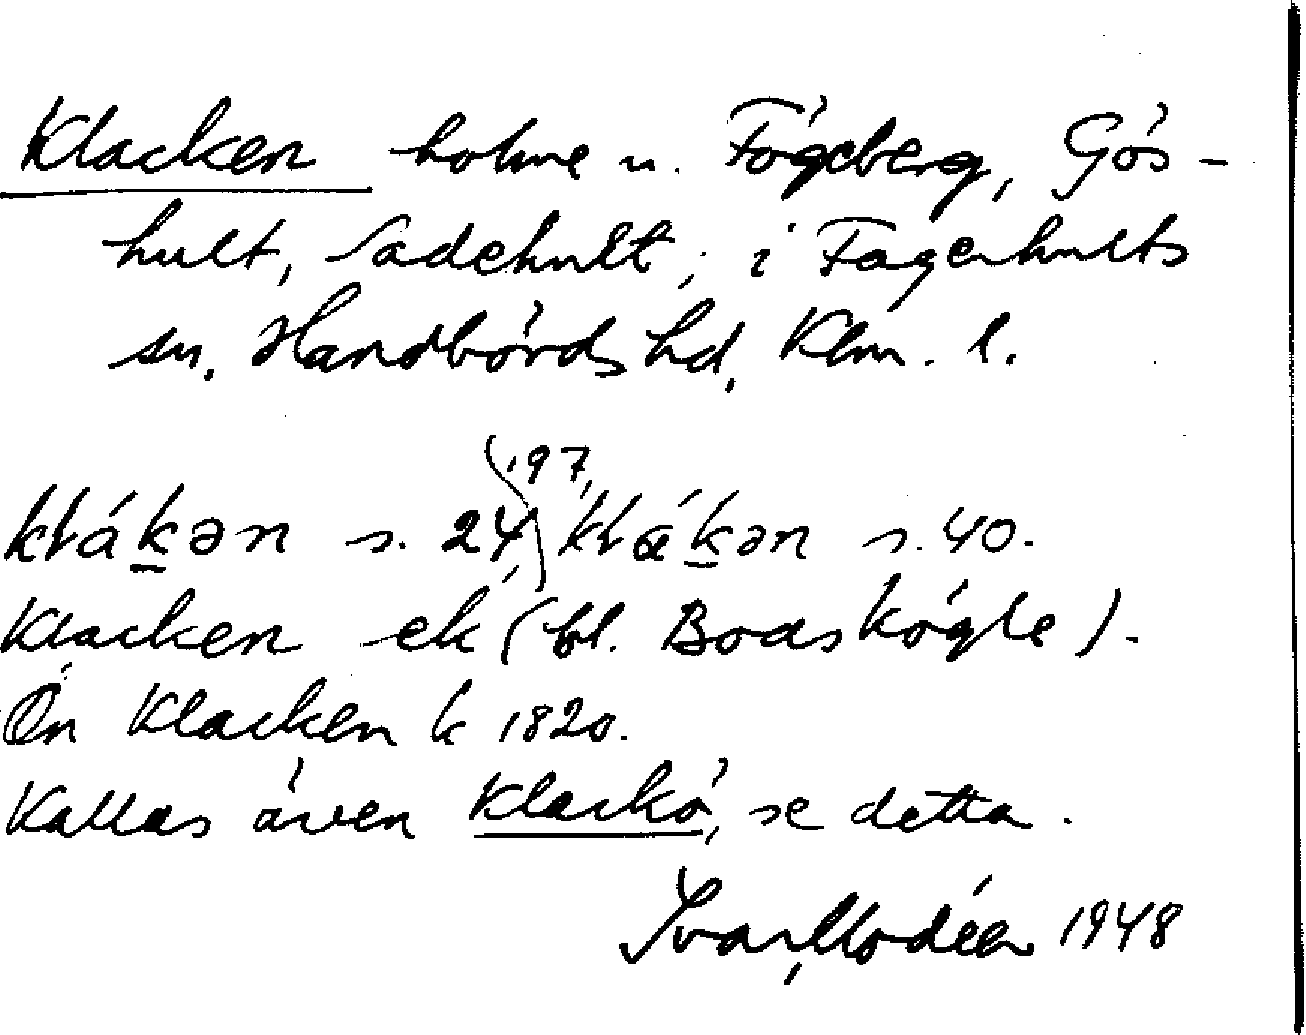 Klacken holme u. Fögeberg, Gös-
hult, Sadehult, i Fagerhults
sn, Handbörds hd, Klm. l.
klák̲ən s. 24, 97, klák̲ən s. 40.
Klacken ek (bl. Boaskögle).
Ön Klacken k 1820.
Kallas även Klackö, se detta.
Ivar Modéer 1948